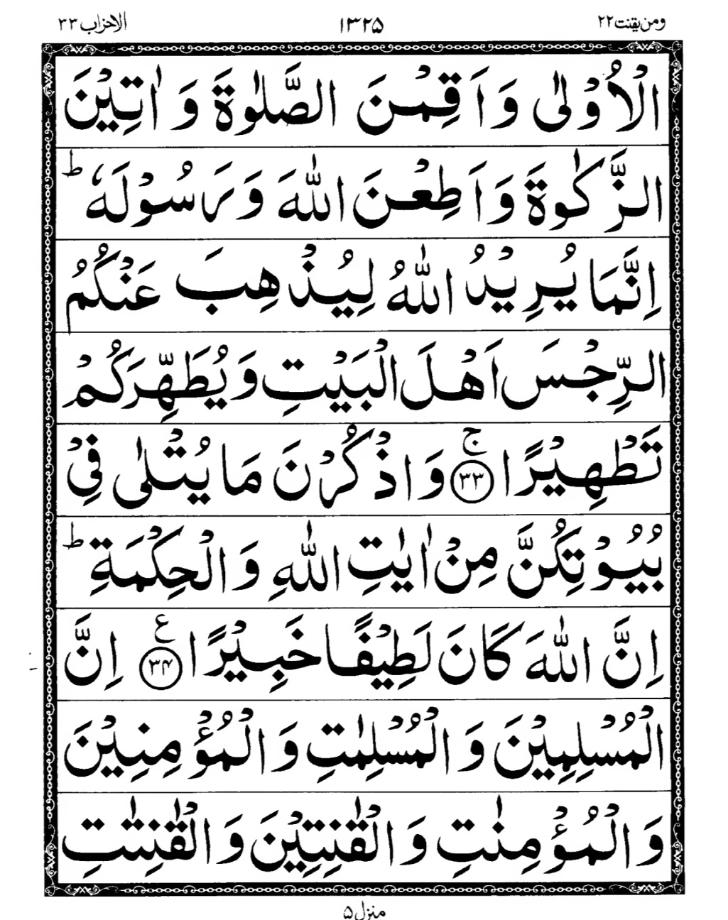 ومن یقنت ۲۲ ۱۳۲۵ الاحزاب ۳۳
الْاُوْلٰى وَاَقِمْنَ الصَّلٰوةَ وَاٰتِيْنَ
الزَّكٰوةَ وَاَطِعْنَ اللّٰهَ وَرَسُوْلَهٗ ؕ
اِنَّمَا يُرِيْدُ اللّٰهُ لِيُذْهِبَ عَنْكُمُ
الرِّجْسَ اَهْلَ الْبَيْتِ وَيُطَهِّرَكُمْ
تَطْهِيْرًا ۚ ﴿۳۳﴾ وَاذْكُرْنَ مَا يُتْلٰى فِيْ
بُيُوْتِكُنَّ مِنْ اٰيٰتِ اللّٰهِ وَالْحِكْمَةِ ؕ
اِنَّ اللّٰهَ كَانَ لَطِيْفًا خَبِيْرًا ﴿۳۴﴾ ع اِنَّ
الْمُسْلِمِيْنَ وَالْمُسْلِمٰتِ وَالْمُؤْمِنِيْنَ
وَالْمُؤْمِنٰتِ وَالْقٰنِتِيْنَ وَالْقٰنِتٰتِ
منزل ۵